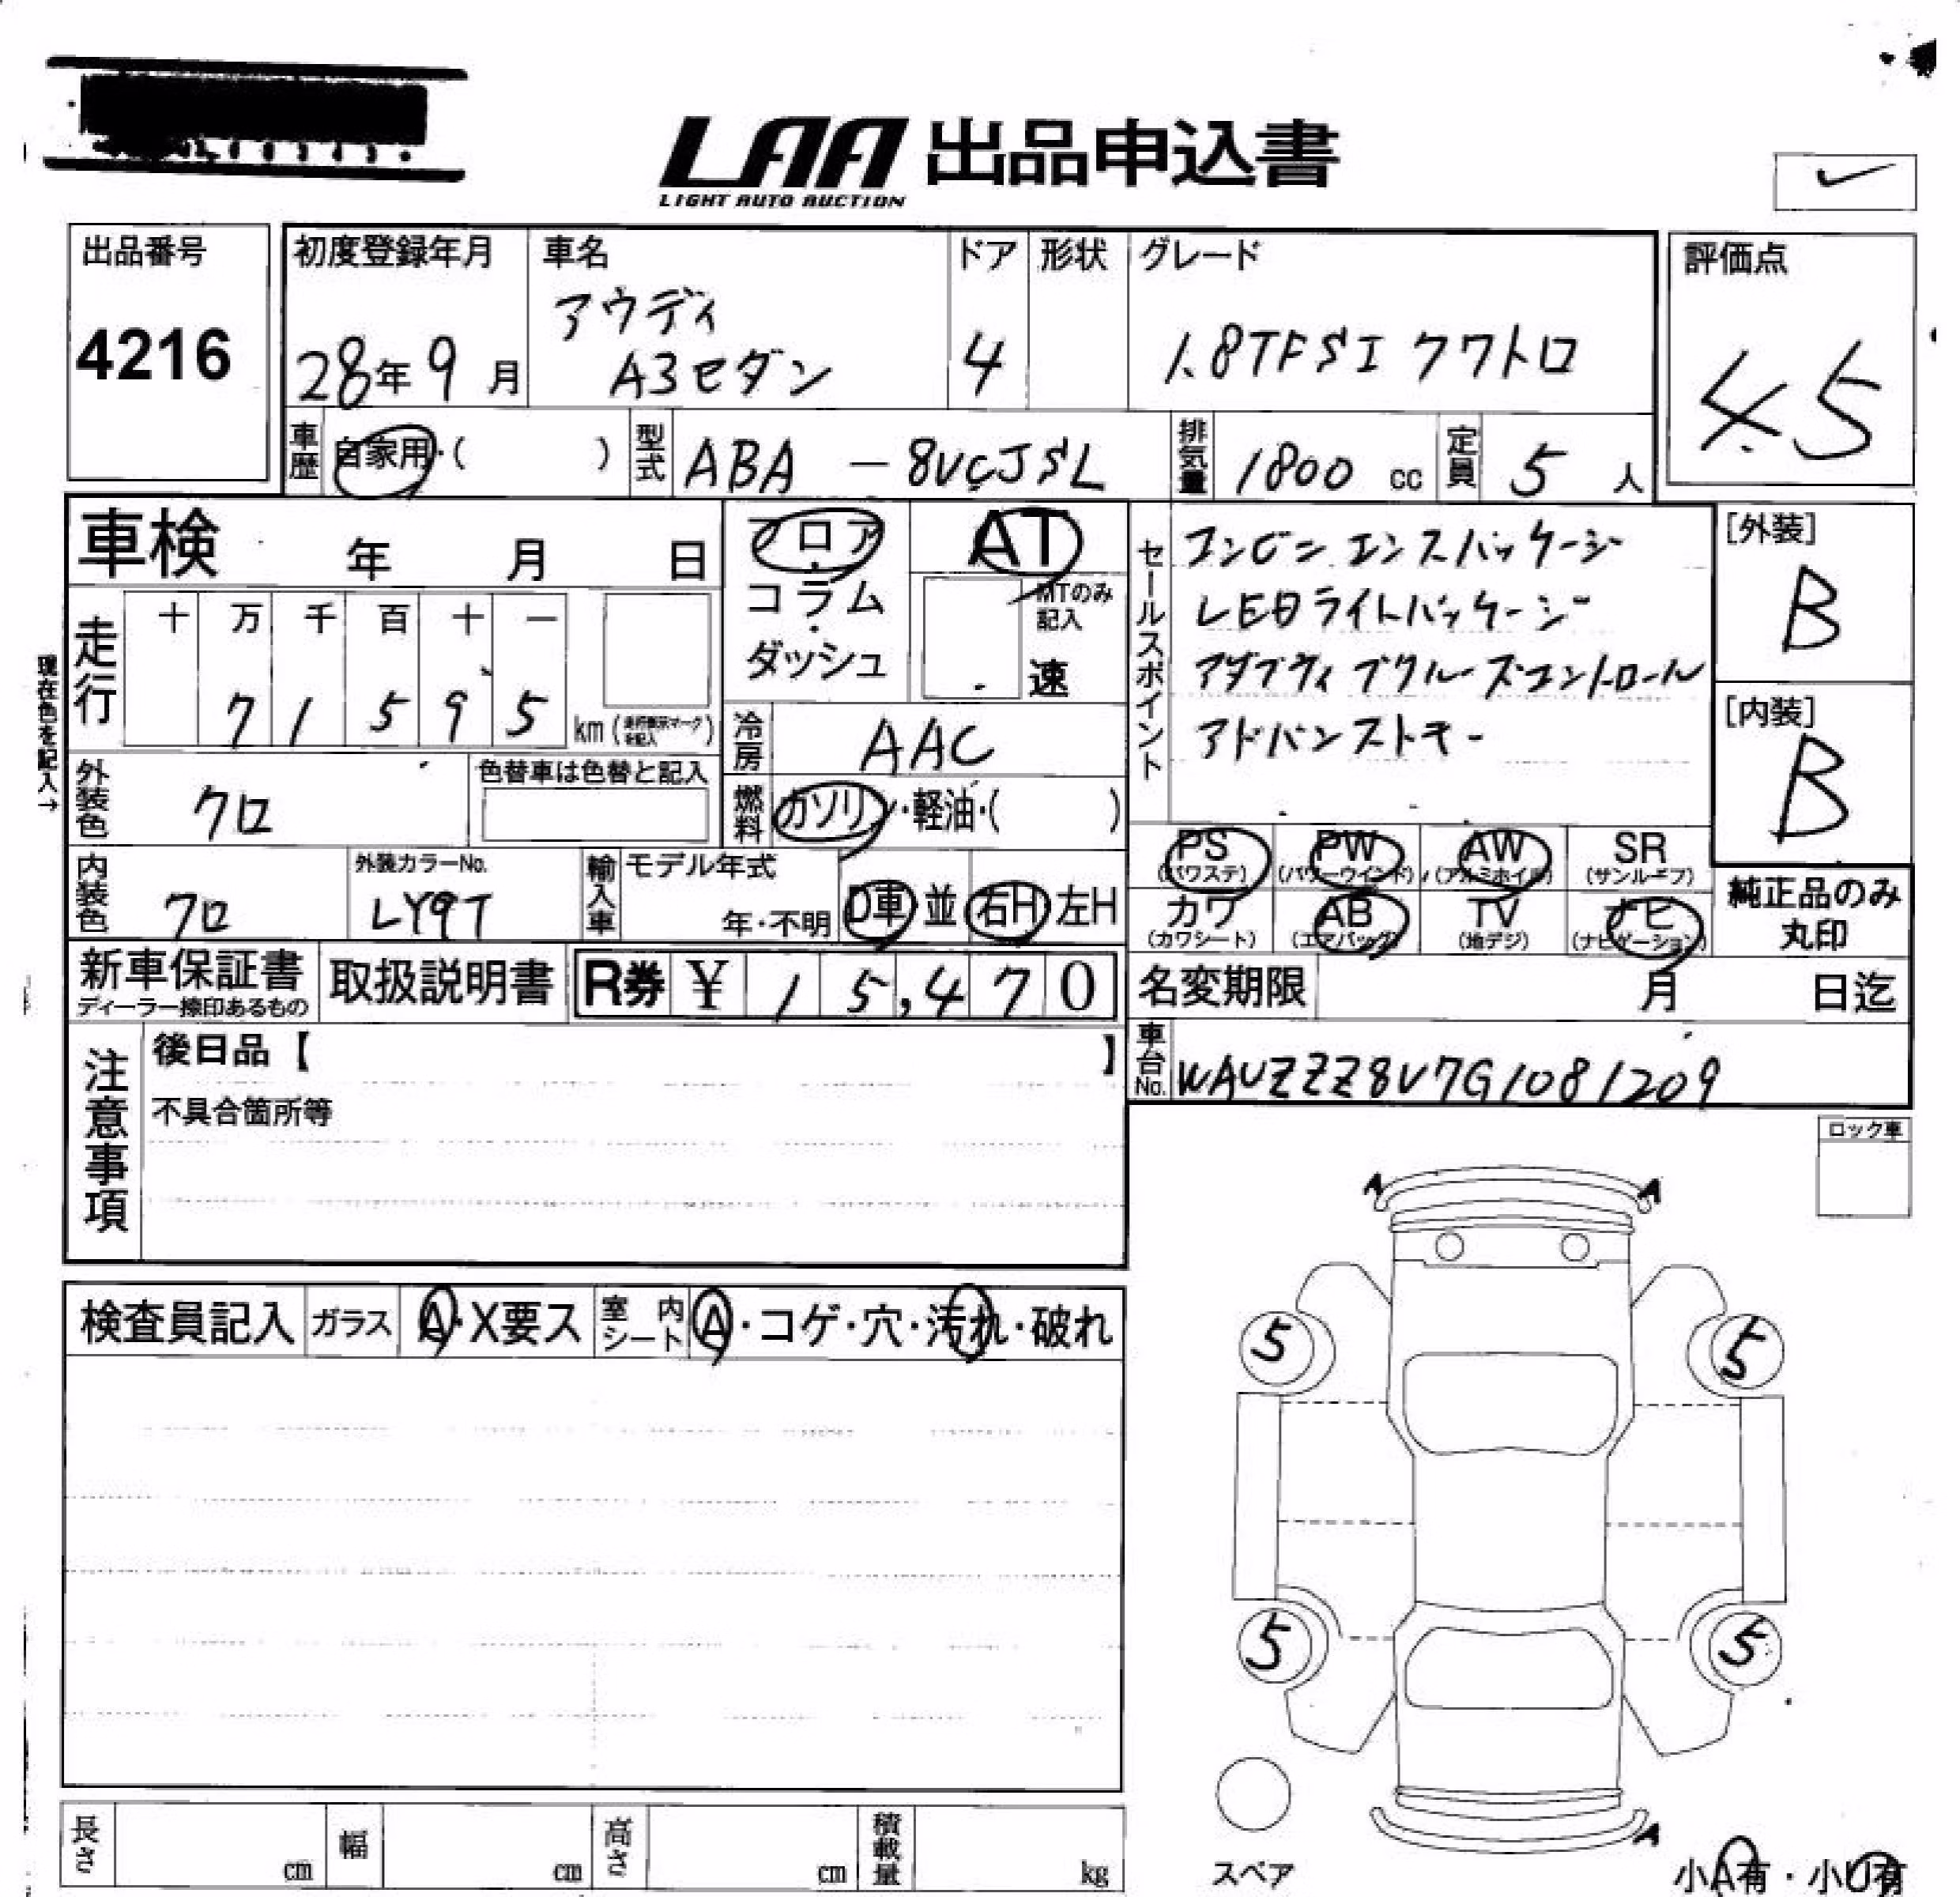 LAA 出品申込書
LIGHT AUTO AUCTION
出品番号
4216
初度登録年月
28年 9月
車名
アウディ
A3セダン
ドア
4
形状
グレード
1.8TFSI クワトロ
評価点
4.5
車歴 自家用・( )
型式 ABA - 8VCJSL
排気量 1800 cc
定員 5 人
車検 年 月 日
フロア・
コラム・
ダッシュ
AT
MTのみ
記入
速
セールスポイント
コンビニエンスパッケージ
LEDライトパッケージ
アダプティブクルーズコントロール
アドバンストキー
[外装]
B
[内装]
B
現在色を記入→
走行
十 万 千 百 十 一
7 1 5 9 5 km
冷房 AAC
外装色 クロ
色替車は色替と記入
燃料 ガソリン・軽油・( )
内装色 クロ
外装カラーNo.
LY9T
輸入車
モデル年式
年・不明
D車・並
右H・左H
PS
(パワステ)
PW
(パワーウインド)
AW
(アルミホイル)
SR
(サンルーフ)
カワ
(カワシート)
AB
(エアバッグ)
TV
(地デジ)
ナビ
(ナビゲーション)
純正品のみ
丸印
新車保証書
ディーラー捺印あるもの
取扱説明書
R券 ¥ 1 5,4 7 0
名変期限 月 日迄
車台No. WAUZZZ8V7G1081209
注意事項
後日品【 】
不具合箇所等
ロック車
検査員記入
ガラス A・X要ス
室内シート A・コゲ・穴・汚れ・破れ
A A
5 5
5 5
A
スペア
小A有・小U有
長さ cm
幅 cm
高さ cm
積載量 kg